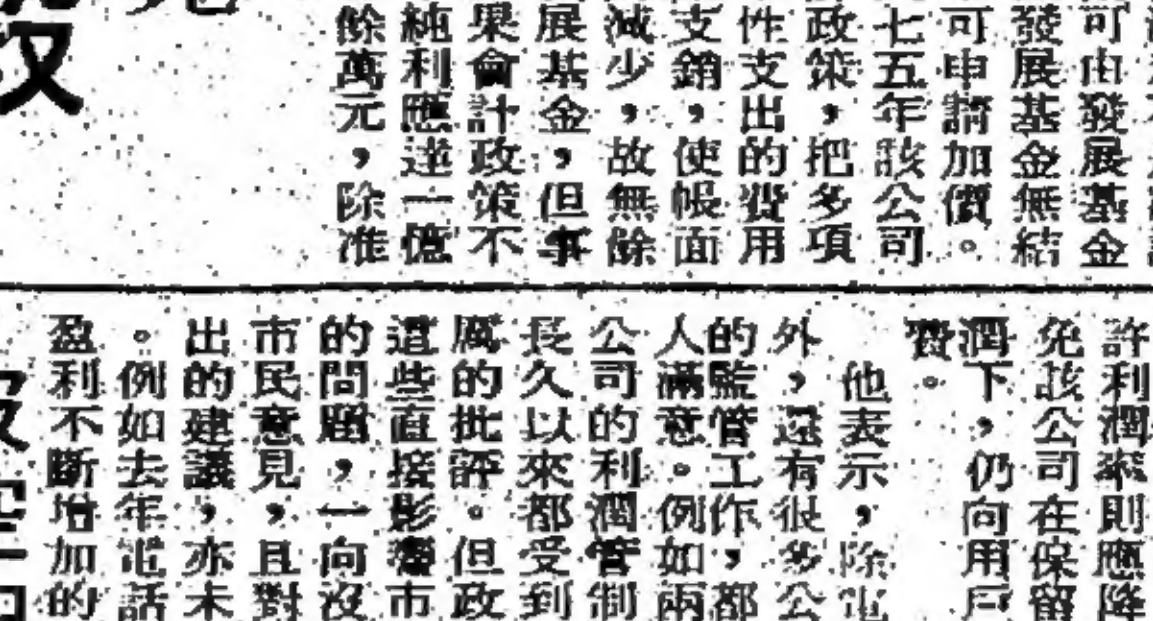 可由發展基金
發展基金無結
可申請加價。
七五年該公司
政策，把多項
性支出的費用
支銷，使帳面
減少，故無餘
展基金，但事
果會計政策不
純利應達一億
餘萬元，除准
許利潤率則應降
免該公司在保留
潤下，仍向用戶
費。
他表示，除電
外，還有很多公
的監管工作，都
人滿意。例如兩
公司的利潤管制
長久以來都受到
厲的批評。但政
這些直接影響市
的問題，一向沒
市民意見，且對
出的建議，亦未
。例如去年電話
盈利不斷增加的